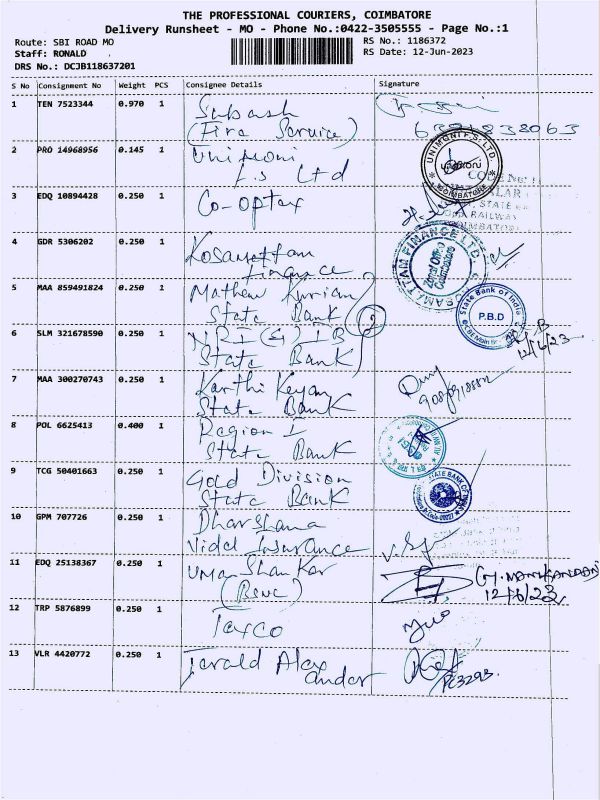 THE PROFESSIONAL COURIERS, COIMBATORE
Delivery Runsheet - MO - Phone No.:0422-3505555 - Page No.:1
Route: SBI ROAD MO RS No.: 1186372
Staff: RONALD RS Date: 12-Jun-2023
DRS No.: DCJB118637201
S No Consignment No Weight PCS Consignee Details Signature
1 TEN 7523344 0.970 1 Subash
(Fire Service)
2 PRO 14968956 0.145 1 Unimoni
F.s Ltd
UNIMONI F.S. LTD.
COIMBATORE
3 EDQ 10894428 0.250 1 Co-optex
4 GDR 5306202 0.250 1 Kosamattam
Finance
KOSAMATTAM FINANCE LTD.
Zonal Office
Coimbatore
5 MAA 859491824 0.250 1 Mathew Kurian
State Bank
2
State Bank of India
P.B.D
6 SLM 321678590 0.250 1 NRI (&) IB
State Bank
12/6/23
7 MAA 300270743 0.250 1 Karthi Keyan
State Bank
8 POL 6625413 0.400 1 Region I
State Bank
9 TCG 50401663 0.250 1 Gold Division
State Bank
STATE BANK OF INDIA
10 GPM 707726 0.250 1 Dharshana
Vidal Insurance
11 EDQ 25138367 0.250 1 Uma Shankar
(BSNL)
G. MANIKANDAN
12/6/23
12 TRP 5876899 0.250 1 Taxco
13 VLR 4420772 0.250 1 Jerald Alex
ander
PC3293